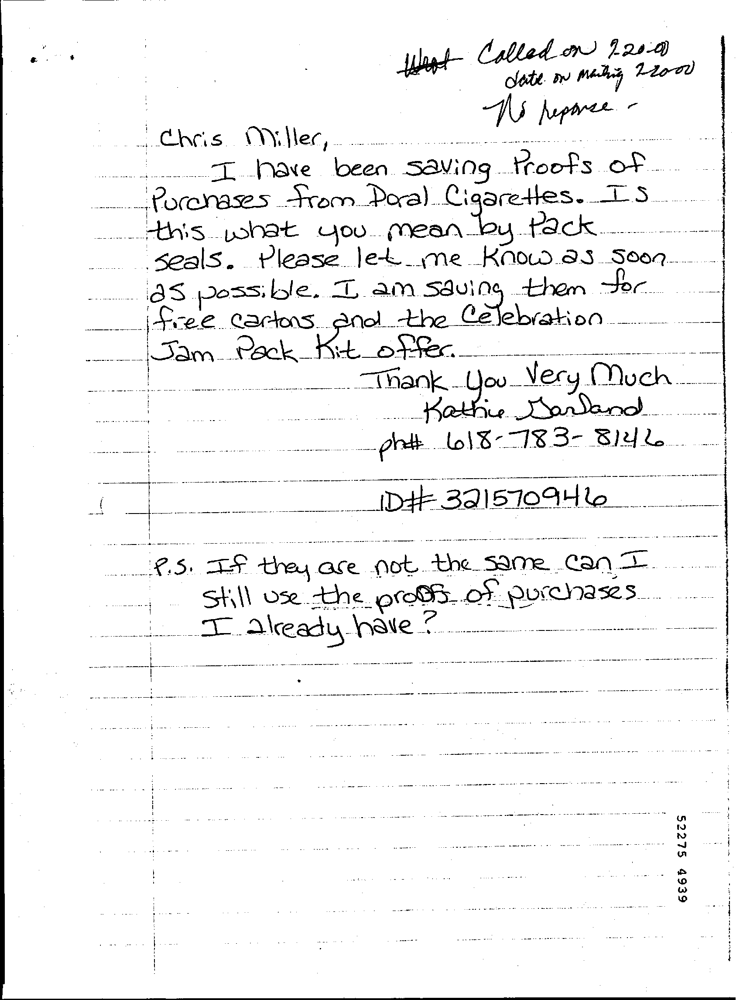 Called on 2-20-00
date on mailing 2-20-00
No reponse -
Chris Miller,
I have been saving Proofs of
Purchases from Doral Cigarettes. Is
this what you mean by Pack
seals. Please let me Know as soon
as possible. I am saving them for
free cartons and the Celebration
Jam Pack Kit offer.
Thank You Very Much
Kathie Garland
ph# 618-783-8146
ID# 321570946
P.S. If they are not the same can I
still use the proofs of purchases
I already have?
52275 4939